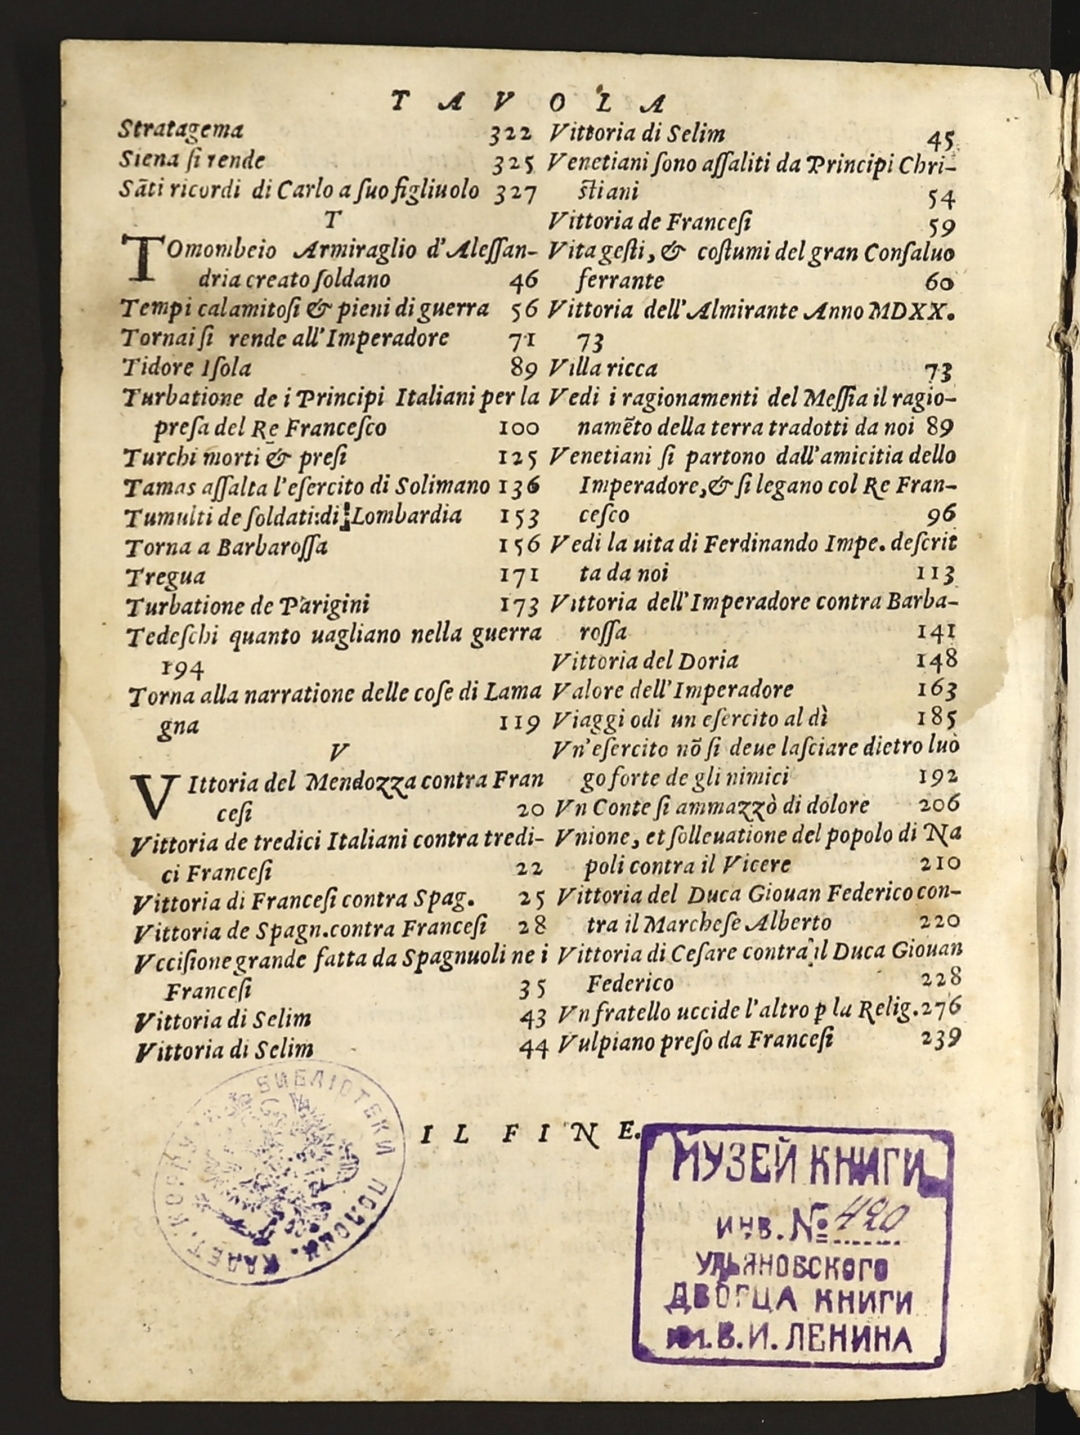 TAVOLA
Stratagema 322
Siena ſi rende 325
Sāti ricordi di Carlo a ſuo figliuolo 327
T
TOmombeio Armiraglio d'Aleſſan-
dria creato ſoldano 46
Tempi calamitoſi & pieni di guerra 56
Tornai ſi rende all'Imperadore 71
Tidore Iſola 89
Turbatione de i Principi Italiani per la
preſa del Re Franceſco 100
Turchi morti & preſi 125
Tamas aſſalta l'eſercito di Solimano 136
Tumulti de ſoldati:di Lombardia 153
Torna a Barbaroſſa 156
Tregua 171
Turbatione de Parigini 173
Tedeſchi quanto uagliano nella guerra
194
Torna alla narratione delle coſe di Lama
gna 119
V
VIttoria del Mendozza contra Fran
ceſi 20
Vittoria de tredici Italiani contra tredi-
ci Franceſi 22
Vittoria di Franceſi contra Spag. 25
Vittoria de Spagn.contra Franceſi 28
Vcciſione grande fatta da Spagnuoli ne i
Franceſi 35
Vittoria di Selim 43
Vittoria di Selim 44
Vittoria di Selim 45
Venetiani ſono aſſaliti da Principi Chri-
ſtiani 54
Vittoria de Franceſi 59
Vita geſti, & coſtumi del gran Conſaluo
ferrante 60
Vittoria dell'Almirante Anno MDXX.
73
Villa ricca 73
Vedi i ragionamenti del Meſſia il ragio-
namēto della terra tradotti da noi 89
Venetiani ſi partono dall'amicitia dello
Imperadore,& ſi legano col Re Fran-
ceſco 96
Vedi la uita di Ferdinando Impe. deſcrit
ta da noi 113
Vittoria dell'Imperadore contra Barba-
roſſa 141
Vittoria del Doria 148
Valore dell'Imperadore 163
Viaggi odi un eſercito al dì 185
Vn'eſercito nō ſi deue laſciare dietro luo
go forte de gli nimici 192
Vn Conte ſi ammazzò di dolore 206
Vnione, et ſolleuatione del popolo di Na
poli contra il Vicere 210
Vittoria del Duca Giouan Federico con-
tra il Marcheſe Alberto 220
Vittoria di Ceſare contra il Duca Giouan
Federico 228
Vn fratello uccide l'altro ꝑ la Relig. 276
Vulpiano preſo da Franceſi 239
IL FINE.
БИБЛІОТЕКИ ПОЛОЦК. КАДЕТ. КОРПУ
МУЗЕЙ КНИГИ
ИНВ. № 420
УЛЬЯНОВСКОГО
ДВОРЦА КНИГИ
им. В.И. ЛЕНИНА